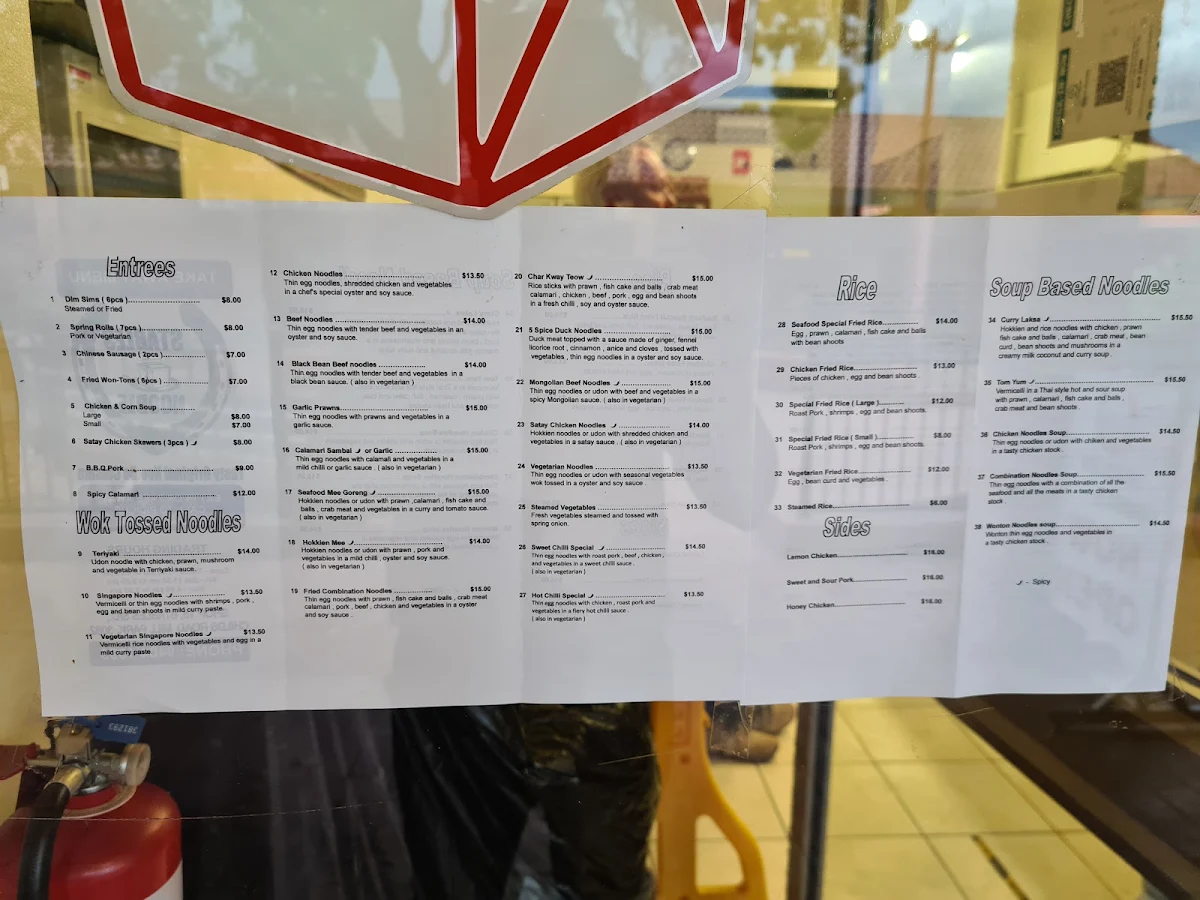 Entrees
1 Dim Sims ( 6pcs )............................. $8.00
Steamed or Fried
2 Spring Rolls ( 7pcs )............................ $8.00
Pork or Vegetarian
3 Chinese Sausage ( 2pcs )................. $7.00
4 Fried Won-Tons ( 6pcs )................. $7.00
5 Chicken & Corn Soup ..............
Large $8.00
Small $7.00
6 Satay Chicken Skewers ( 3pcs ) $8.00
7 B.B.Q.Pork ................................ $9.00
8 Spicy Calamari ........................... $12.00
Wok Tossed Noodles
9 Teriyaki ................................ $14.00
Udon noodle with chicken, prawn, mushroom
and vegetable in Terriyaki sauce.
10 Singapore Noodles .................... $13.50
Vermicelli or thin egg noodles with shrimps , pork ,
egg and bean shoots in mild curry paste.
11 Vegetarian Singapore Noodles $13.50
Vermicelli rice noodles with vegetables and egg in a
mild curry paste
12 Chicken Noodles ........................... $13.50
Thin egg noodles, shredded chicken and vegetables
in a chef's special oyster and soy sauce.
13 Beef Noodles ................................ $14.00
Thin egg noodles with tender beef and vegetables in an
oyster and soy sauce.
14 Black Bean Beef noodles ................ $14.00
Thin egg noodles with tender beef and vegetables in a
black bean sauce. ( also in vegetarian )
15 Garlic Prawns................................ $15.00
Thin egg noodles with prawns and vegetables in a
garlic sauce.
16 Calamari Sambal or Garlic ................ $15.00
Thin egg noodles with calamari and vegetables in a
mild chilli or garlic sauce . ( also in vegetarian )
17 Seafood Mee Goreng .................... $15.00
Hokkien noodles or udon with prawn ,calamari , fish cake and
balls , crab meat and vegetables in a curry and tomato sauce.
( also in vegetarian )
18 Hokkien Mee ................................ $14.00
Hokkien noodles or udon with prawn , pork and
vegetables in a mild chilli , oyster and soy sauce.
( also in vegetarian )
19 Fried Combination Noodles .................... $15.00
Thin egg noodles with prawn , fish cake and balls , crab meat
calamari , pork , beef , chicken and vegetables in a oyster
and soy sauce .
20 Char Kway Teow ........................... $15.00
Rice sticks with prawn , fish cake and balls , crab meat
calamari , chicken , beef , pork , egg and bean shoots
in a fresh chilli , soy and oyster sauce.
21 5 Spice Duck Noodles .................... $15.00
Duck meat topped with a sauce made of ginger, fennel
licorice root , cinnamon , anice and cloves , tossed with
vegetables , thin egg noodles in a oyster and soy sauce.
22 Mongolian Beef Noodles ................ $15.00
Thin egg noodles or udon with beef and vegetables in a
spicy Mongolian sauce. ( also in vegetarian )
23 Satay Chicken Noodles .................... $14.00
Hokkien noodles or udon with shredded chicken and
vegetables in a satay sauce . ( also in vegetarian )
24 Vegetarian Noodles .................... $13.50
Thin egg noodles or udon with seasonal vegetables
wok tossed in a oyster and soy sauce .
25 Steamed Vegetables .................... $13.50
Fresh vegetables steamed and tossed with
spring onion.
26 Sweet Chilli Special .................... $14.50
Thin egg noodles with roast pork , beef , chicken ,
and vegetables in a sweet chilli sauce .
( also in vegetarian )
27 Hot Chilli Special .................... $13.50
Thin egg noodles with chicken , roast pork and
vegetables in a fiery hot chilli sauce .
( also in vegetarian )
Rice
28 Seafood Special Fried Rice................ $14.00
Egg , prawn , calamari , fish cake and balls
with bean shoots
29 Chicken Fried Rice........................ $13.00
Pieces of chicken , egg and bean shoots .
30 Special Fried Rice ( Large )................ $12.00
Roast Pork , shrimps , egg and bean shoots.
31 Special Fried Rice ( Small )................ $8.00
Roast Pork , shrimps , egg and bean shoots.
32 Vegetarian Fried Rice .................... $12.00
Egg , bean curd and vegetables .
33 Steamed Rice................................ $6.00
Sides
Lemon Chicken................................ $16.00
Sweet and Sour Pork.................... $16.00
Honey Chicken................................ $16.00
Soup Based Noodles
34 Curry Laksa ................................ $15.50
Hokkien and rice noodles with chicken , prawn
fish cake and balls , calamari, crab meat , bean
curd , bean shoots and mushrooms in a
creamy milk coconut and curry soup .
35 Tom Yum ................................ $15.50
Vermicelli in a Thai style hot and sour soup
with prawn , calamari , fish cake and balls ,
crab meat and bean shoots .
36 Chicken Noodles Soup.................... $14.50
Thin egg noodles or udon with chiken and vegetables
in a tasty chicken stock .
37 Combination Noodles Soup................ $15.50
Thin egg noodles with a combination of all the
seafood and all the meats in a tasty chicken
stock .
38 Wonton Noodles soup.................... $14.50
Wonton thin egg noodles and vegetables in
a tasty chicken stock .
- Spicy
381293